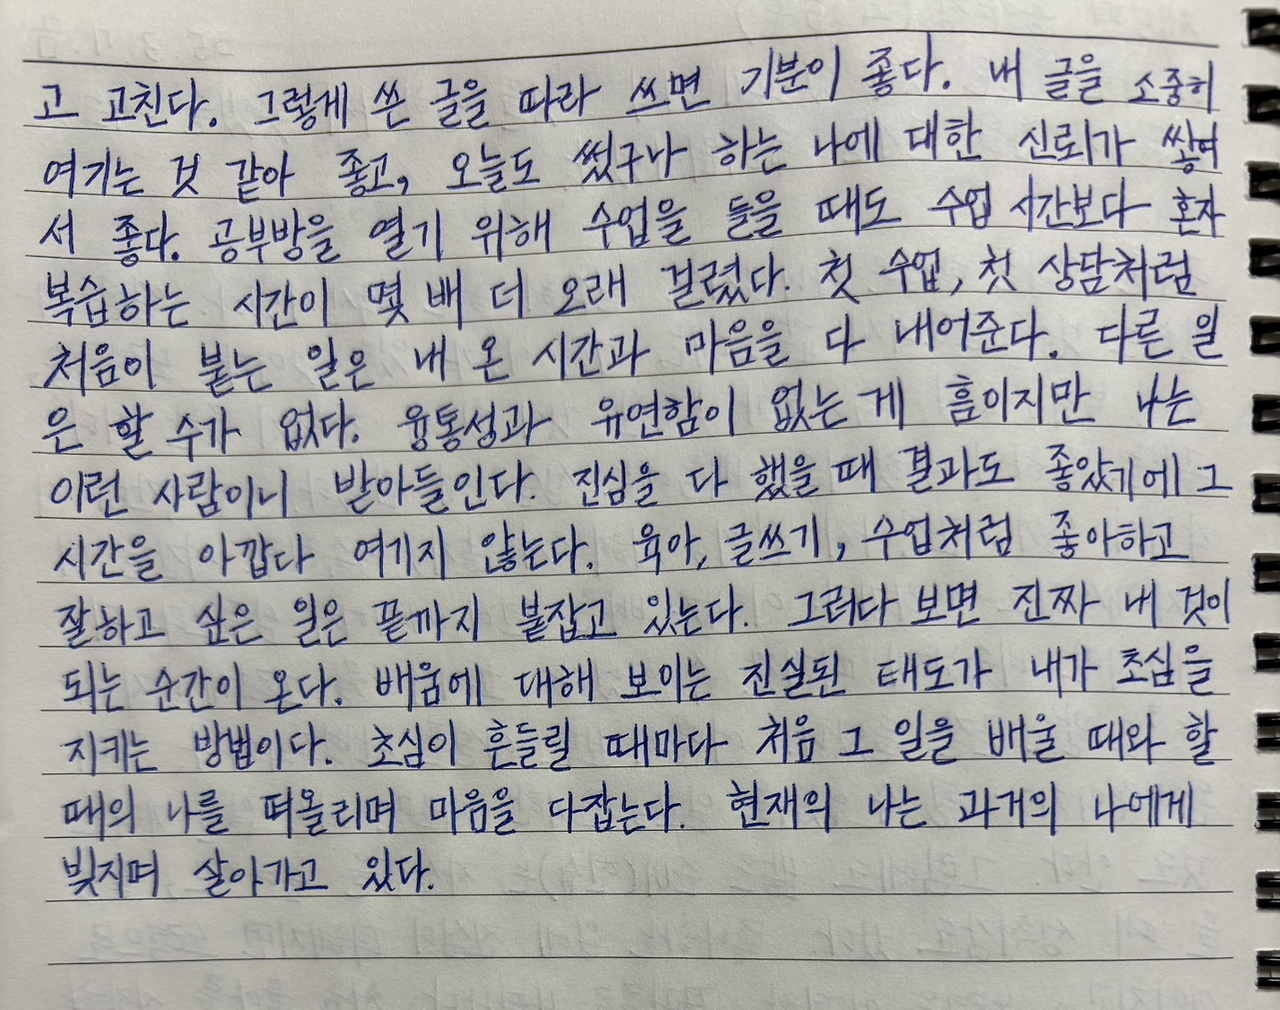 고 고친다. 그렇게 쓴 글을 따라 쓰면 기분이 좋다. 내 글을 소중히
여기는 것 같아 좋고, 오늘도 썼구나 하는 나에 대한 신뢰가 쌓여
서 좋다. 공부방을 열기 위해 수업을 들을 때도 수업 시간보다 혼자
복습하는 시간이 몇 배 더 오래 걸렸다. 첫 수업, 첫 상담처럼
처음이 붙는 일은 내 온 시간과 마음을 다 내어준다. 다른 일
은 할 수가 없다. 융통성과 유연함이 없는 게 흠이지만 나는
이런 사람이니 받아들인다. 진심을 다 했을 때 결과도 좋았기에 그
시간을 아깝다 여기지 않는다. 육아, 글쓰기, 수업처럼 좋아하고
잘하고 싶은 일은 끝까지 붙잡고 있는다. 그러다 보면 진짜 내 것이
되는 순간이 온다. 배움에 대해 보이는 진실된 태도가 내가 초심을
지키는 방법이다. 초심이 흔들릴 때마다 처음 그 일을 배울 때와 할
때의 나를 떠올리며 마음을 다잡는다. 현재의 나는 과거의 나에게
빚지며 살아가고 있다.